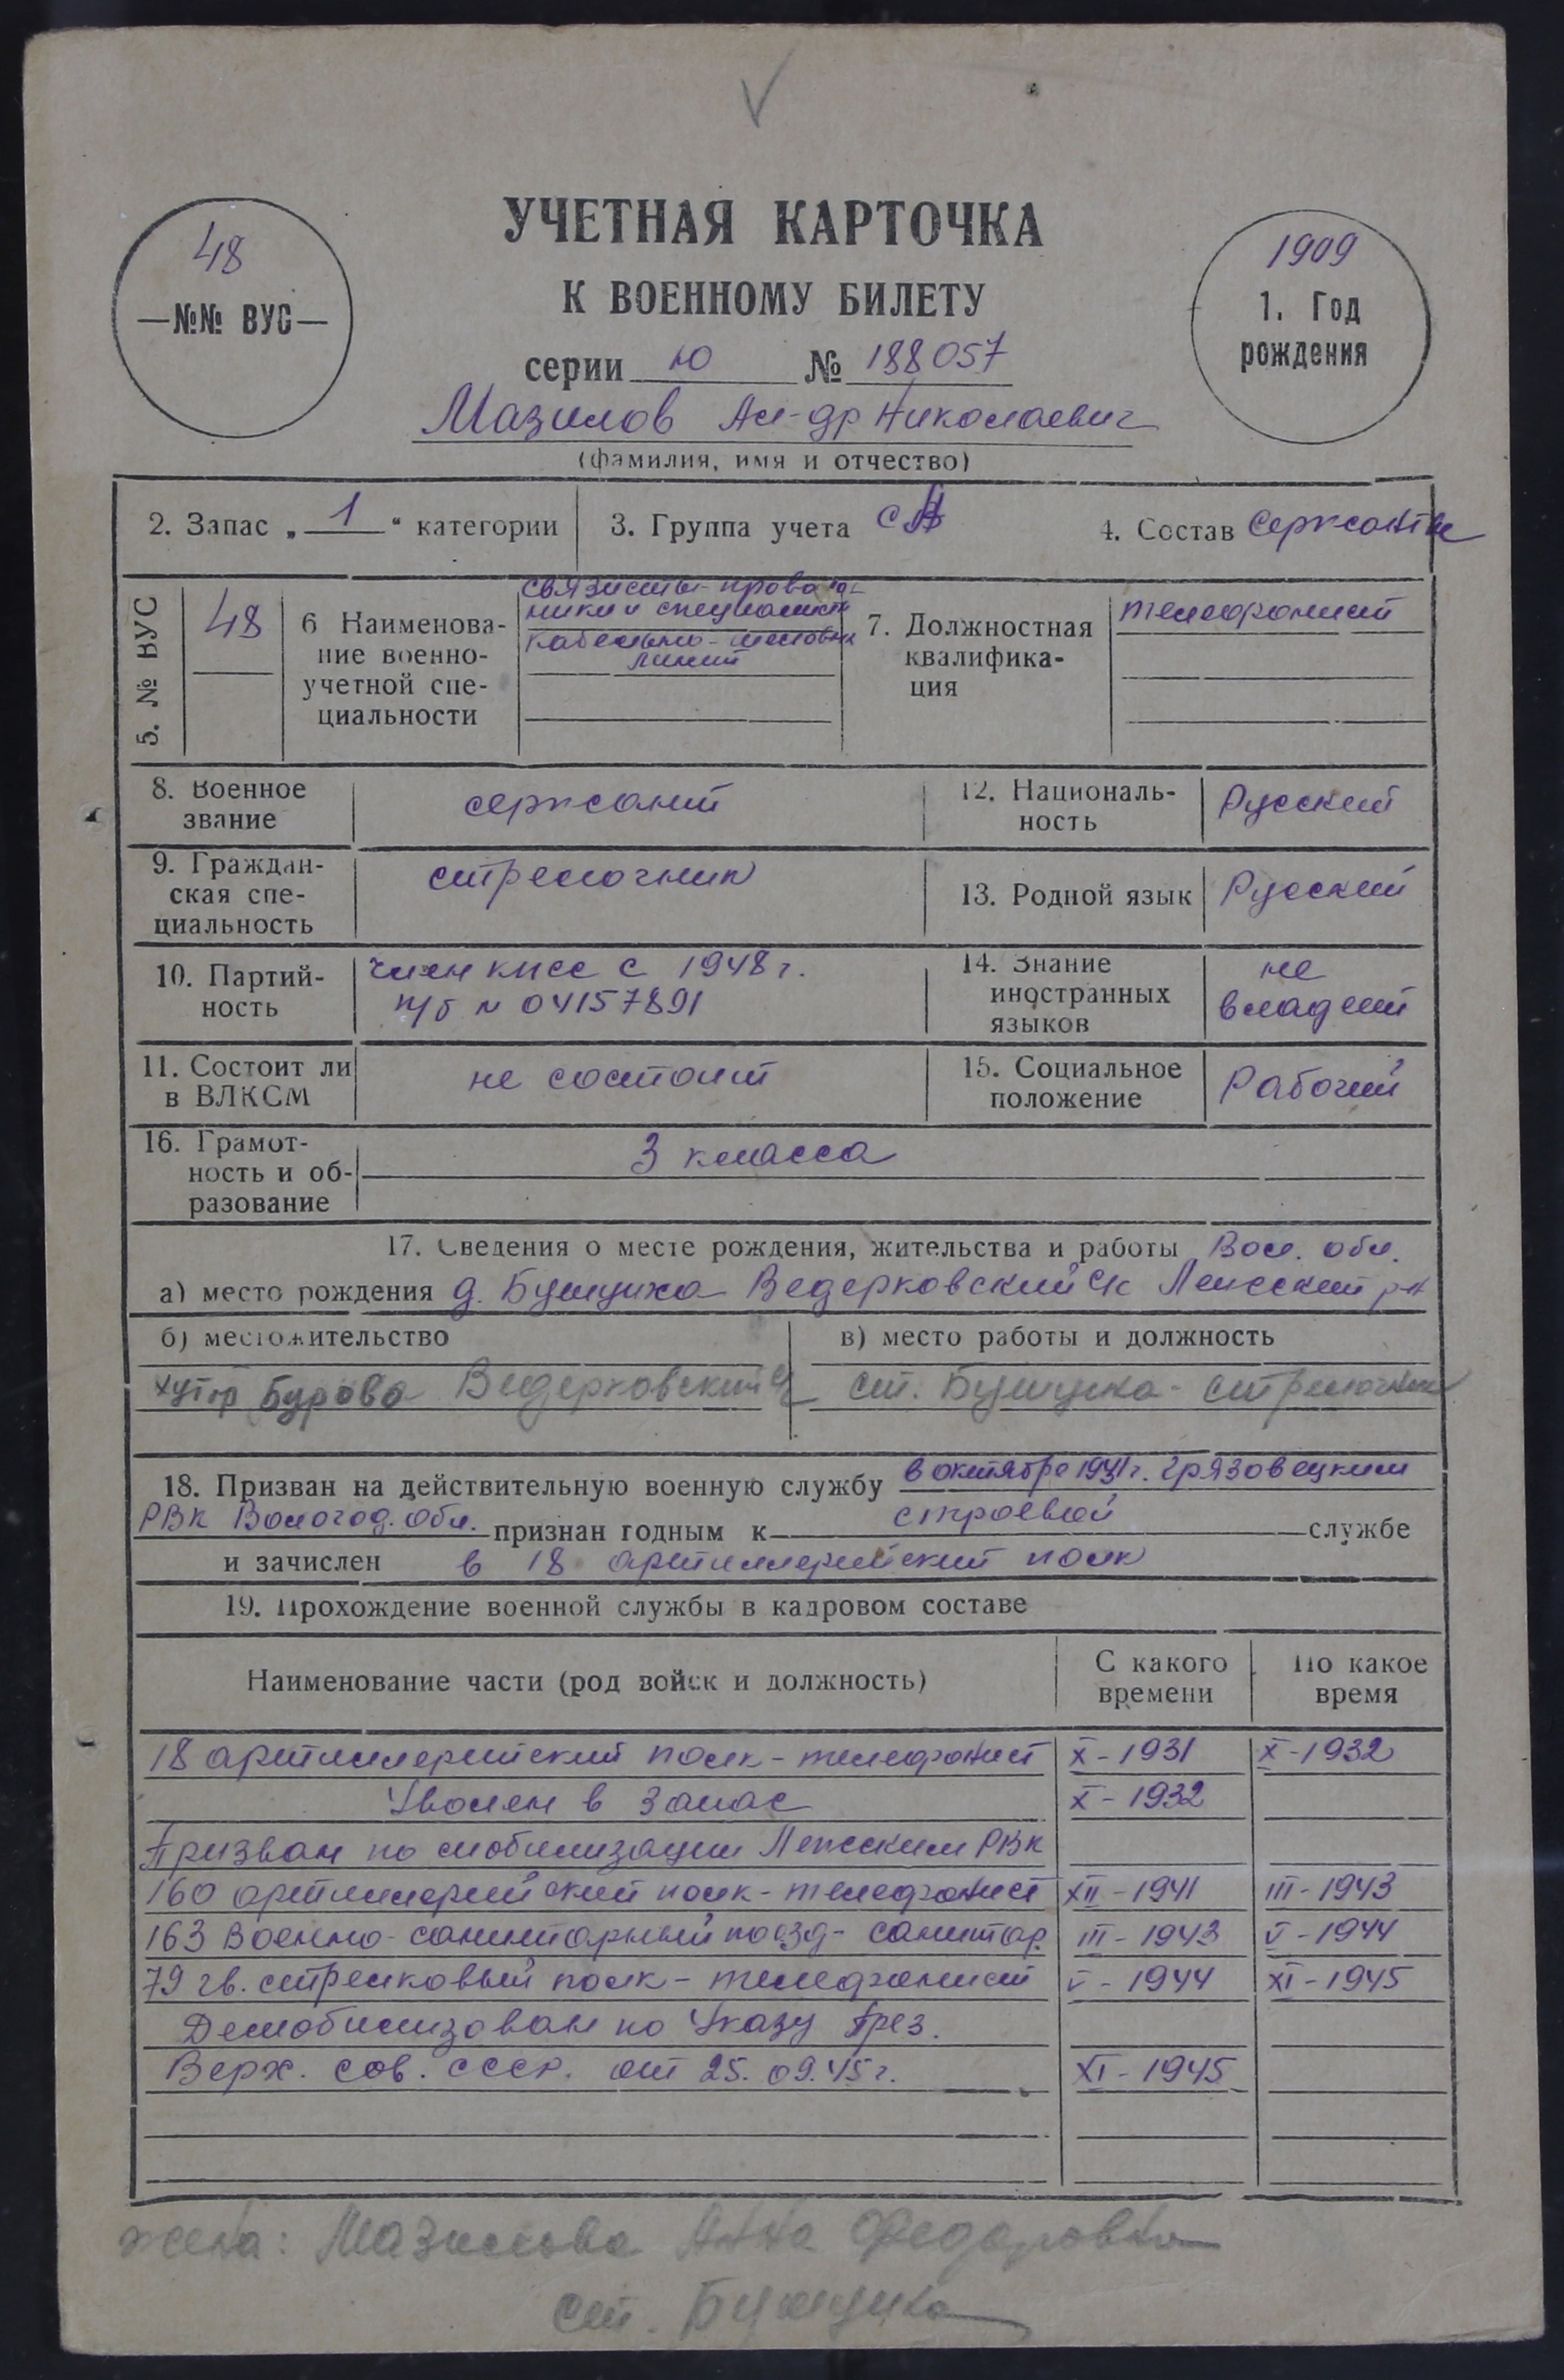 48
—№№ ВУС—
УЧЕТНАЯ КАРТОЧКА
К ВОЕННОМУ БИЛЕТУ
серии Ю № 188057
1909
1. Год
рождения
Мазилов Ал-др Николаевич
(фамилия, имя и отчество)
2. Запас „ 1 “ категории
3. Группа учета СА
4. Состав Сержанты
5. № ВУС
48
6 Наименова-
ние военно-
учетной спе-
циальности
связисты-провод-
ники и специалист
кабельно-шестовых
линий
7. Должностная
квалифика-
ция
телефонист
8. Военное
звание
сержант
12. Националь-
ность
Русский
9. Граждан-
ская спе-
циальность
стрелочник
13. Родной язык
Русский
10. Партий-
ность
член КПСС с 1948 г.
п/б N 04157891
14. Знание
иностранных
языков
не
владеет
11. Состоит ли
в ВЛКСМ
не состоит
15. Социальное
положение
Рабочий
16. Грамот-
ность и об-
разование
3 класса
17. Сведения о месте рождения, жительства и работы Вол. обл.
а) место рождения д. Бушуиха Ведерковский с/с Лежский р-н
б) местожительство
хутор Бурово Ведерковский
в) место работы и должность
ст. Бушуиха - стрелочник
18. Призван на действительную военную службу в октябре 1931 г. Грязовецким
РВК Вологод. обл. признан годным к строевой службе
и зачислен в 18 артиллерийский полк
19. Прохождение военной службы в кадровом составе
Наименование части (род войск и должность)
С какого
времени
По какое
время
18 артиллерийский полк - телефонист X - 1931 X - 1932
Уволен в запас X - 1932
Призван по мобилизации Лежским РВК
160 артиллерийский полк - телефонист XII - 1941 III - 1943
163 Военно-санитарный поезд - санитар. III - 1943 V - 1944
79 гв. стрелковый полк - телефонист V - 1944 XI - 1945
Демобилизован по Указу През.
Верх. Сов. СССР. от 25.09.45 г. XI - 1945
жена: Мазилова Анна Федоровна
ст. Бушуиха